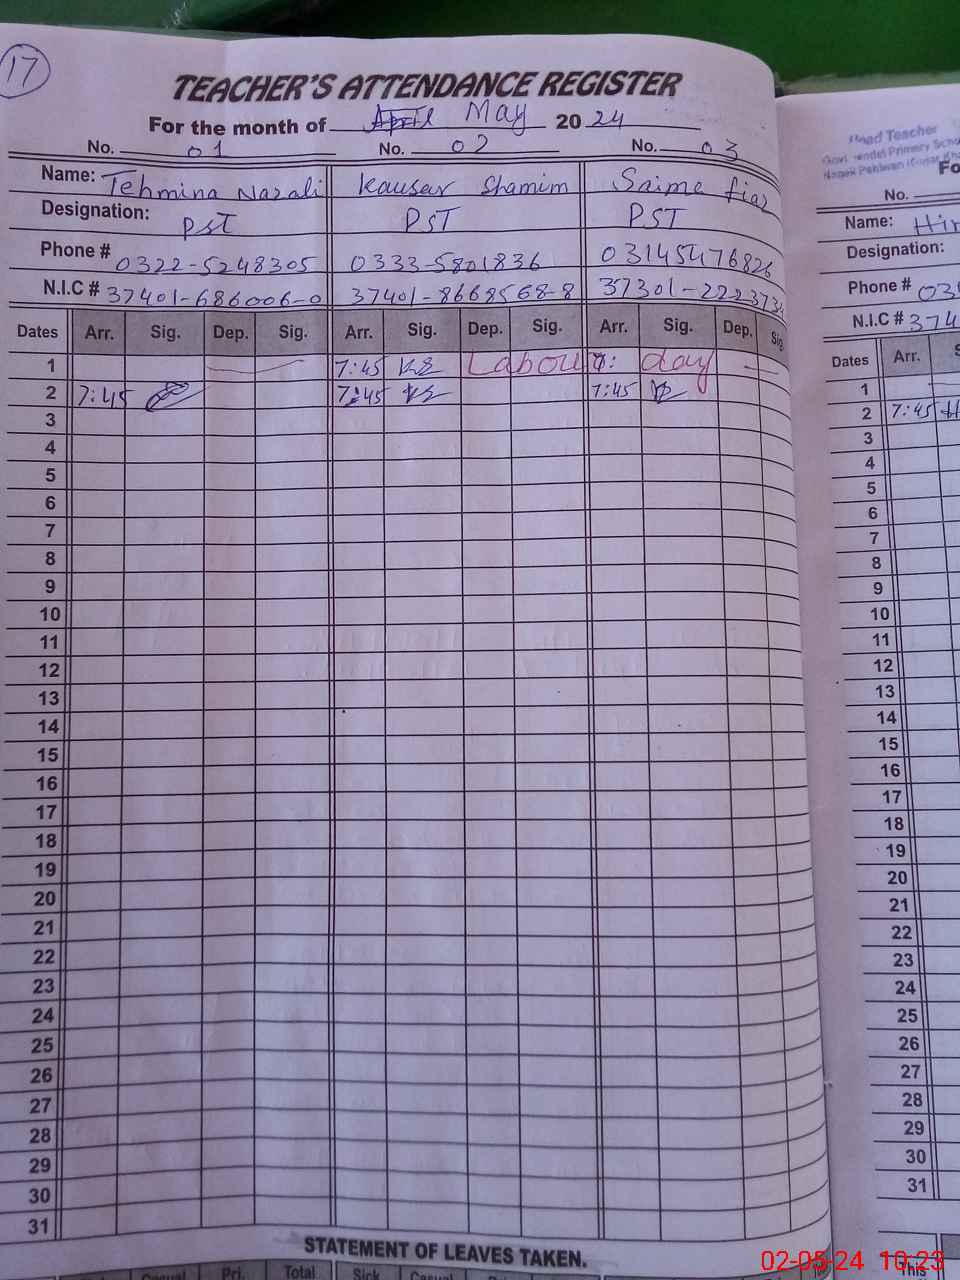 17
TEACHER'S ATTENDANCE REGISTER
For the month of May 20 24
No. 01 No. 02 No. 03
Name: Tehmina Nazali Kausar Shamim Saima
Designation: PST PST PST
Phone # 0322-5248305 0333-5801836 03145476826
N.I.C # 37401-686006-0 37401-8668568-8 37301-2223734
Dates Arr. Sig. Dep. Sig. Arr. Sig. Dep. Sig. Arr. Sig. Dep. Sig
1 7:45 KS Labour day
2 7:45 7:45 KS 7:45
3
4
5
6
7
8
9
10
11
12
13
14
15
16
17
18
19
20
21
22
23
24
25
26
27
28
29
30
31
STATEMENT OF LEAVES TAKEN.
Casual Pri. Total Sick Casual
Head Teacher
Primary
Fo
No.
Name: Hir
Designation:
Phone # 03
N.I.C # 374
Dates Arr. S
1
2 7:45
3
4
5
6
7
8
9
10
11
12
13
14
15
16
17
18
19
20
21
22
23
24
25
26
27
28
29
30
31
This
02-05-24 10:23